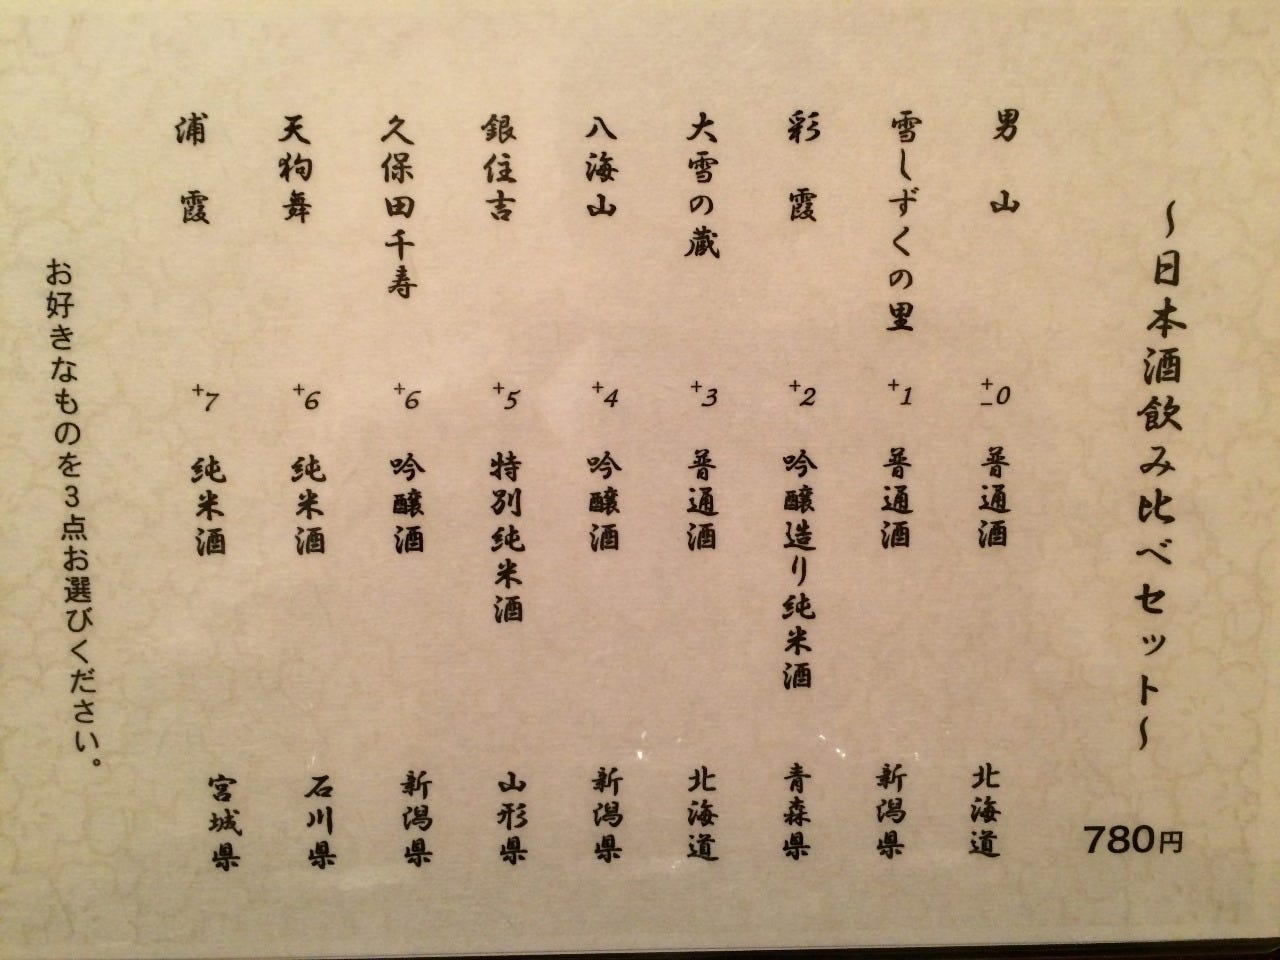 ～日本酒飲み比べセット～
780円
男山 +-0 普通酒 北海道
雪しずくの里 +1 普通酒 新潟県
彩霞 +2 吟醸造り純米酒 青森県
大雪の蔵 +3 普通酒 北海道
八海山 +4 吟醸酒 新潟県
銀住吉 +5 特別純米酒 山形県
久保田千寿 +6 吟醸酒 新潟県
天狗舞 +6 純米酒 石川県
浦霞 +7 純米酒 宮城県
お好きなものを3点お選びください。